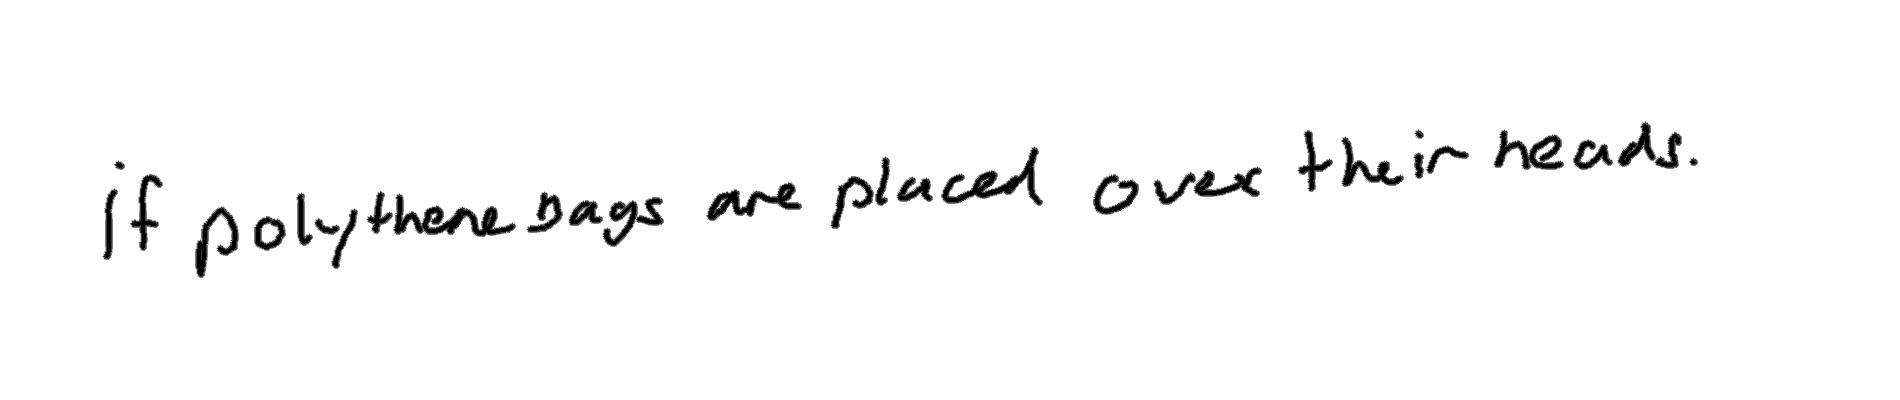 if polythene bags are placed over their heads.